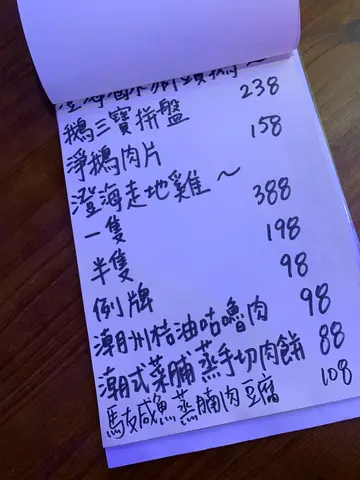 鵝三寶拼盤 238
淨鵝肉片 158
澄海走地雞～
一隻 388
半隻 198
例牌 98
潮州桔油咕嚕肉 98
潮式菜脯蒸手切肉餅 88
馬友咸魚蒸腩肉豆腐 108